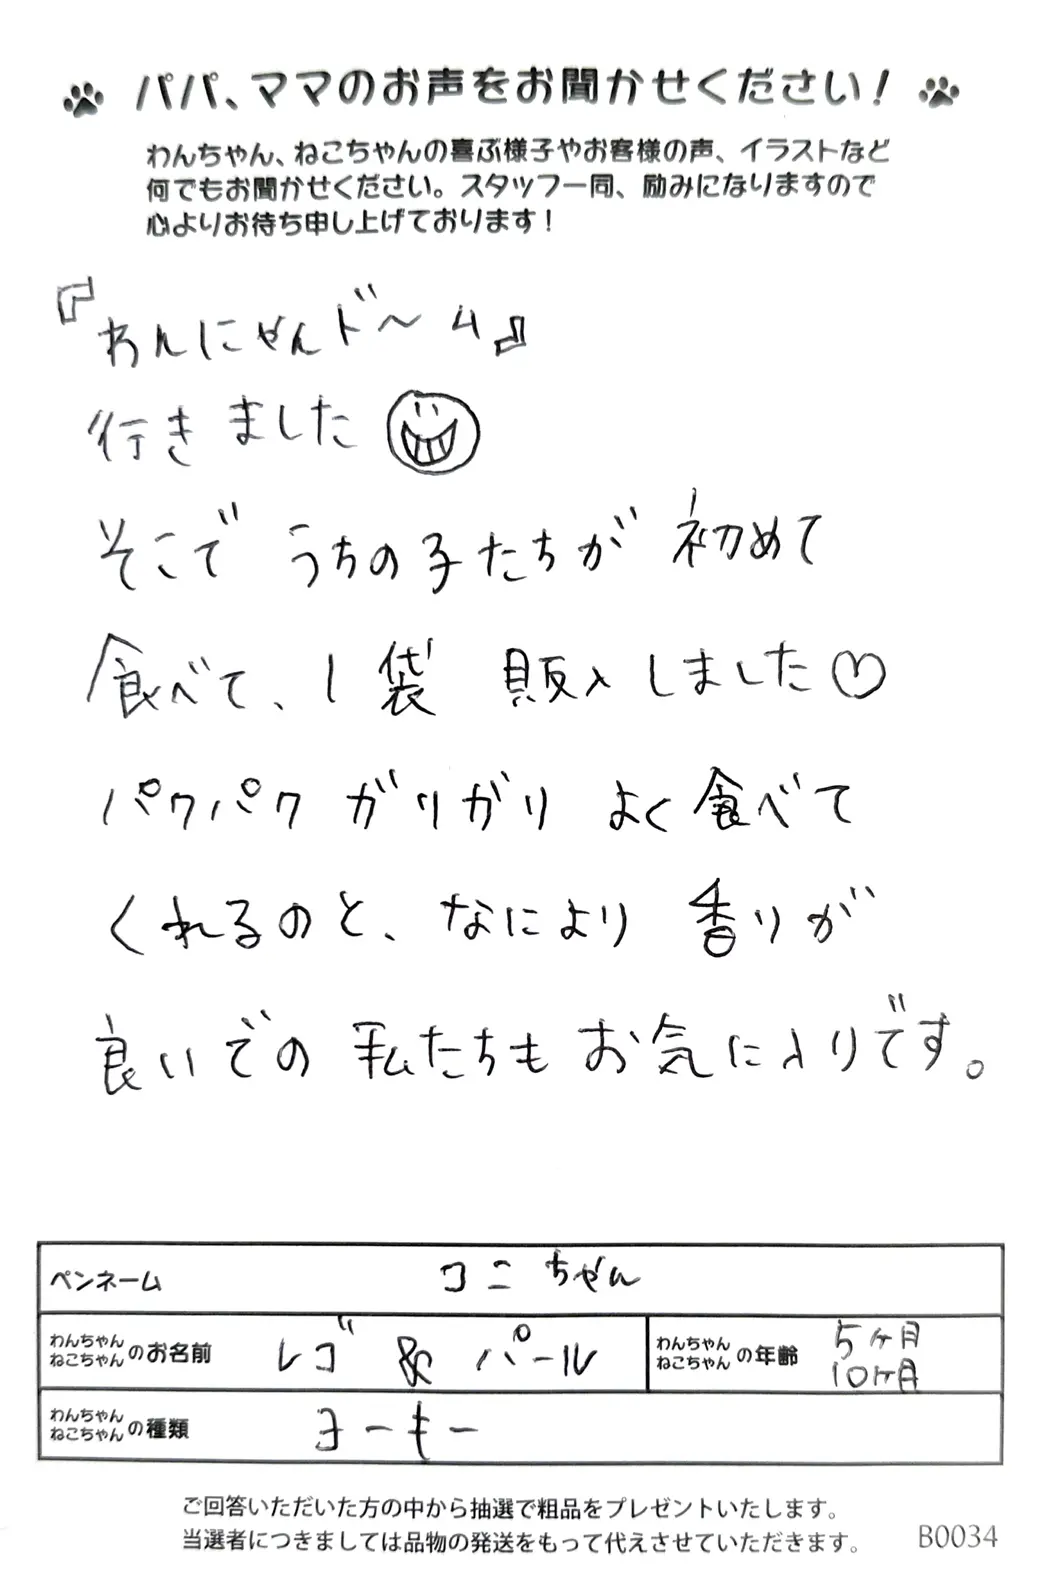 パパ、ママのお声をお聞かせください！
わんちゃん、ねこちゃんの喜ぶ様子やお客様の声、イラストなど
何でもお聞かせください。スタッフ一同、励みになりますので
心よりお待ち申し上げております！
『わんにゃんド〜ム』
行きました
そこで うちの子たちが 初めて
食べて、1袋 販入しました♡
パクパク ガリガリ よく食べて
くれるのと、なにより 香りが
良いでの 私たちも お気に入りです。
ペンネーム コニちゃん
わんちゃん ねこちゃん のお名前 レゴ & パール わんちゃん ねこちゃん の年齢 5ヶ月 10ヶ月
わんちゃん ねこちゃん の種類 ヨーキー
ご回答いただいた方の中から抽選で粗品をプレゼントいたします。
当選者につきましては品物の発送をもって代えさせていただきます。 B0034